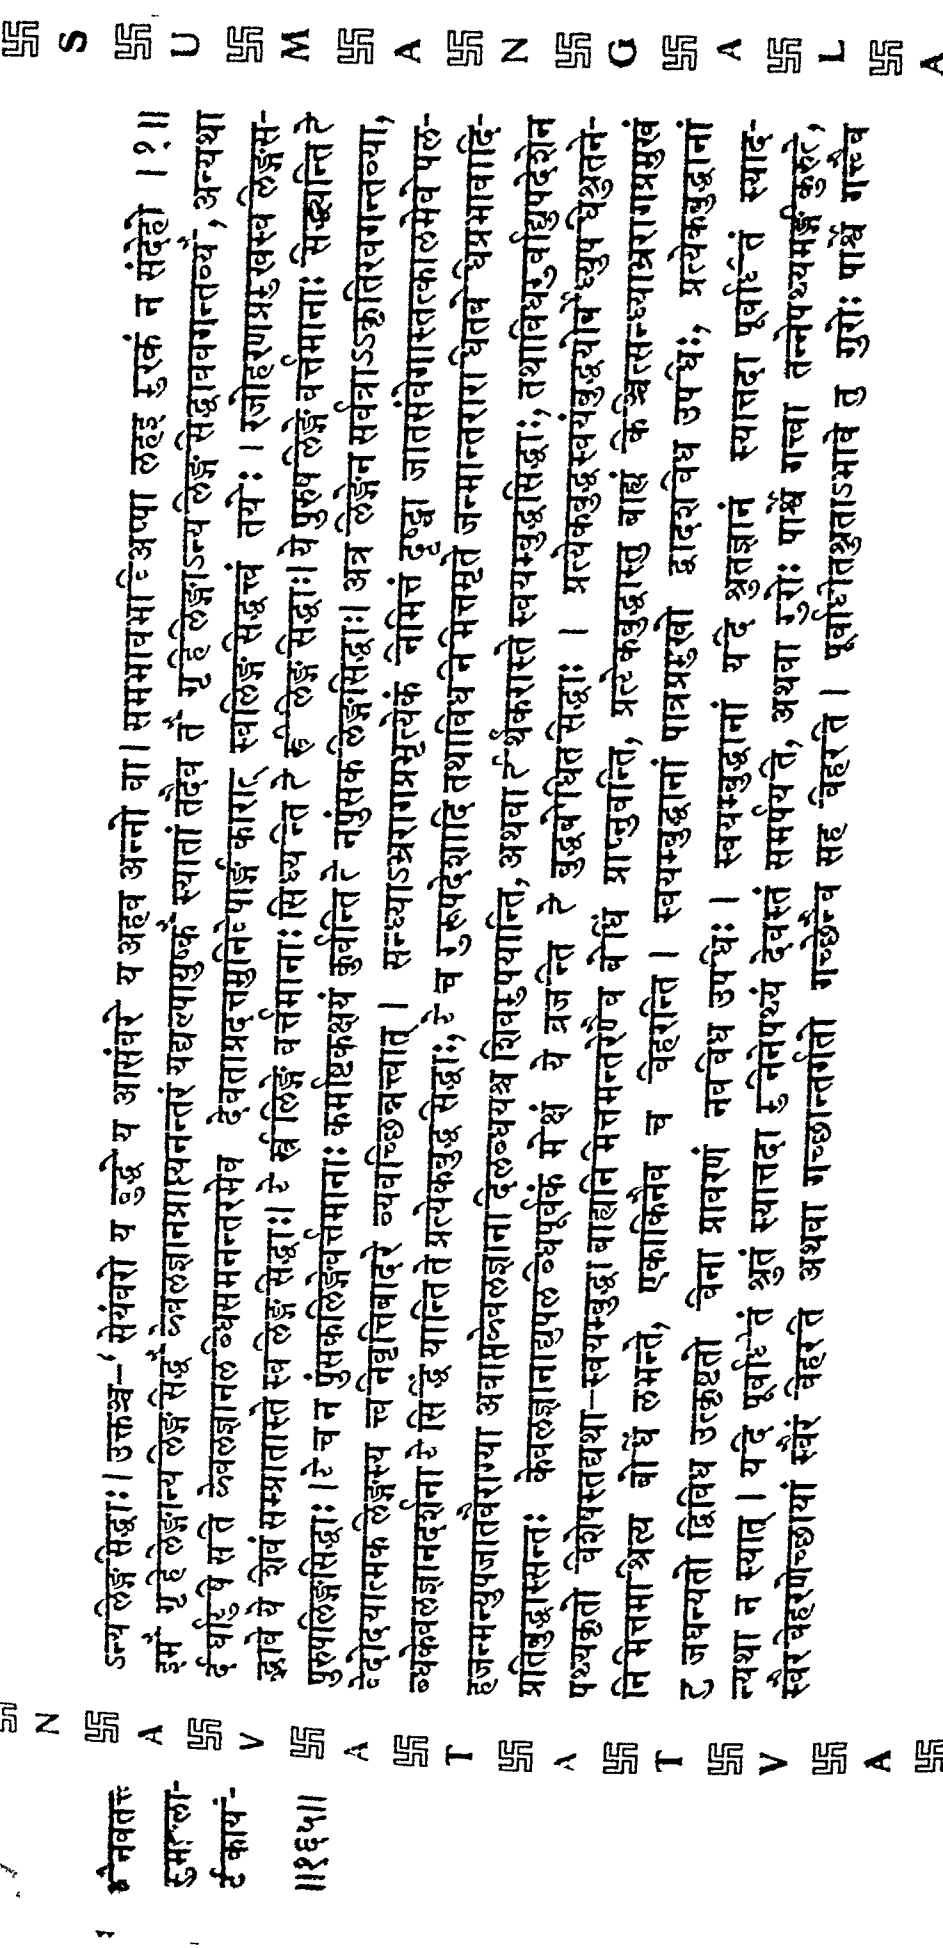 卐 S 卐 U 卐 M 卐 A 卐 N 卐 G 卐 A 卐 L 卐 A
ऽन्यलिङ्गसिद्धाः । उक्तञ्च–'सेयंवरो य बुद्धो य आसंवरो य अहव अन्नो वा । समभावभाविअप्पा लहइ मुक्खं न संदेहो ।१।।
इमौ गृहिलिङ्गान्यलिङ्गसिद्धौ केवलज्ञानप्राप्त्यनन्तरं यद्यल्पायुष्कौ स्यातां तदैव तौ गृहिलिङ्गाऽन्यलिङ्गसिद्धाववगन्तव्यौ, अन्यथा
दीर्घायुषि सति केवलज्ञानलब्धिसमनन्तरमेव देवताप्रदत्तमुनिवेषाङ्गीकारात् स्वलिङ्गसिद्धत्वं तयोः । रजोहरणप्रमुखस्वलिङ्गस-
द्भावे ये शिवं सम्प्राप्तास्ते स्वलिङ्गसिद्धाः । ये स्त्रीलिङ्गे वर्त्तमानाः सिध्यन्ति ते स्त्रीलिङ्गसिद्धाः । ये पुरुषलिङ्गे वर्त्तमानाः सिद्ध्यन्ति ते
पुरुषलिङ्गसिद्धाः । ये च नपुंसकलिङ्गे वर्त्तमानाः कर्माष्टकक्षयं कुर्वन्ति ते नपुंसकलिङ्गसिद्धाः । अत्र लिङ्गेन सर्वत्राऽऽकृतिरवगन्तव्या,
वेदोदयात्मकलिङ्गस्य च व्यवच्छिन्नत्वात् । सन्ध्याऽभ्ररागप्रभृत्येकं निमित्तं दृष्ट्वा जातसंवेगास्तत्कालमेव पल-
ब्धकेवलज्ञानदर्शना ये सिद्धिं यान्ति ते प्रत्येकबुद्धसिद्धाः, ये च गुरूपदेशादि तथाविधनिमित्तमृते जन्मान्तर
हजन्मन्युपजातवैराग्या अवाप्तकेवलज्ञानादिलब्धयश्च शिवमुपयान्ति, अथवा तीर्थंकरास्ते स्वयम्बुद्धसिद्धाः, तथाविधगुर्वाद्युपदेशेन
प्रतिबुद्धास्सन्तः केवलज्ञानाद्युपलब्धिपूर्वकं मोक्षं ये व्रजन्ति ते बुद्धबोधितसिद्धाः । प्रत्येकबुद्धस्वयंबुद्धयोर्बोध्युपधिश्रुतने-
पथ्यकृतो विशेषस्तद्यथा–स्वयम्बुद्धा बाह्यनिमित्तमन्तरेणैव बोधिं प्राप्नुवन्ति, प्रत्येकबुद्धास्तु बाह्यं किञ्चित्सन्ध्याभ्ररागप्रमुखं
निमित्तमाश्रित्य बोधिं लभन्ते, एकाकिनैव च विहरन्ति । स्वयम्बुद्धानां पात्रप्रमुखो द्वादशविध उपधिः, प्रत्येकबुद्धानां
तु जघन्यतो द्विविध उत्कृष्टतो विना प्रावरणं नवविध उपधिः । स्वयम्बुद्धानां यदि श्रुतज्ञानं स्यात्तदा पूर्वाधीतं स्याद-
न्यथा न स्यात् । यदि पूर्वाधीतं श्रुतं स्यात्तदा मुनिनेपथ्यं देवस्तं समर्पयति, अथवा गुरोः पार्श्वे गत्त्वा तन्नेपथ्यमङ्गीकुरुते,
स्वैरविहरणेच्छायां स्वैरं विहरति अथवा गच्छान्तर्गतो गच्छेनैव सह विहरति । पूर्वाधीतश्रुताऽभावे तु गुरोः पार्श्वे गत्त्वैव
卐 N 卐 A 卐 V 卐 A 卐 T 卐 A 卐 T 卐 V 卐 A 卐
॥१६५॥